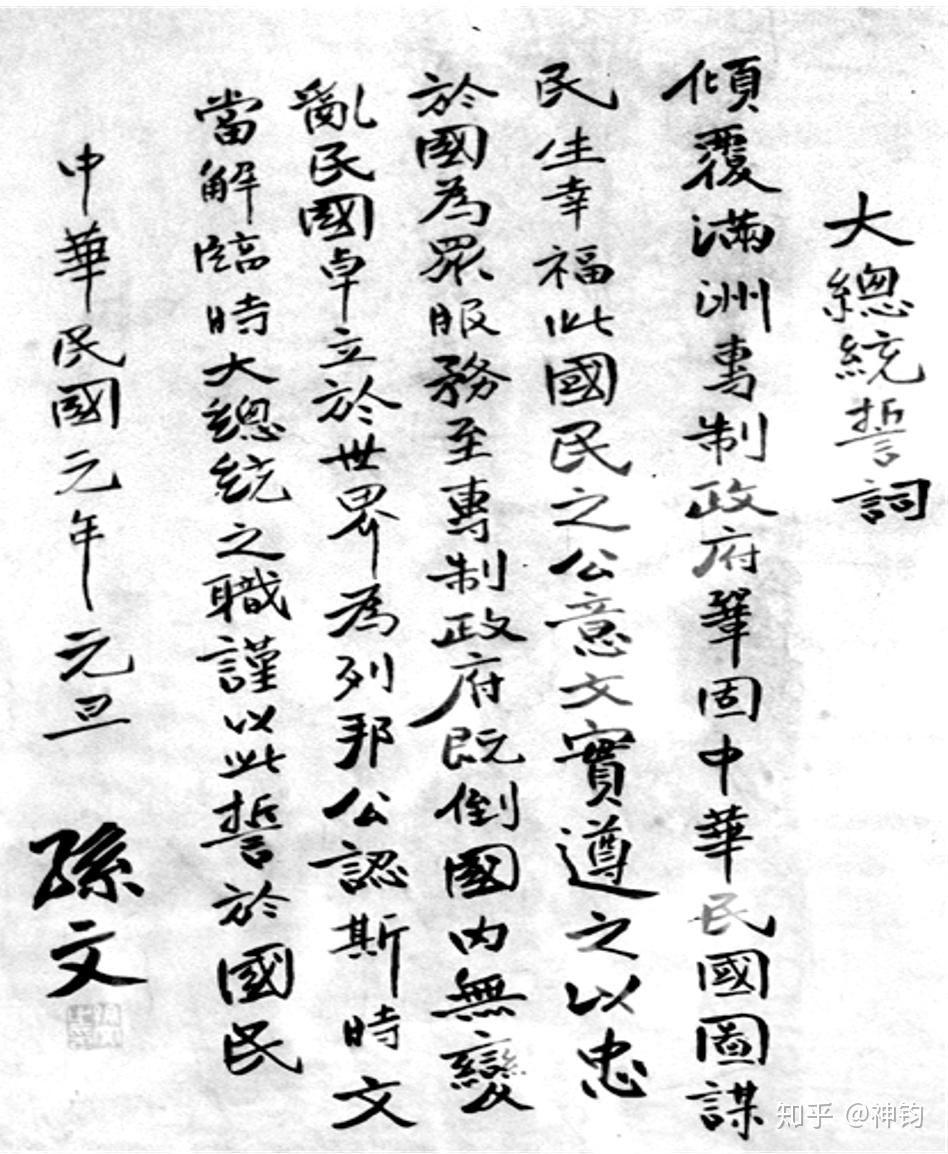 大總統誓詞
傾覆滿洲專制政府鞏固中華民國圖謀
民生幸福此國民之公意文實遵之以忠
於國為眾服務至專制政府既倒國內無變
亂民國卓立於世界為列邦公認斯時文
當解臨時大總統之職謹以此誓於國民
中華民國元年元旦 孫文
知乎 @神钧